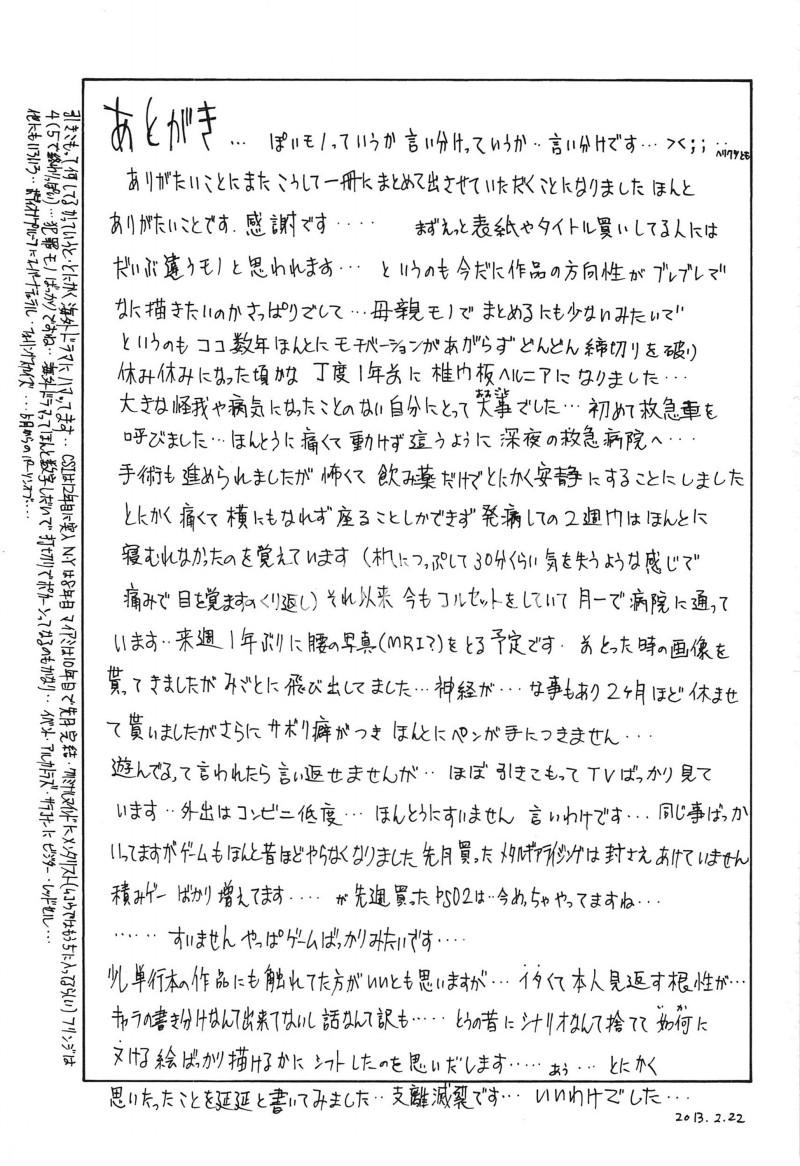 あとがき … ぽいモノっていうか 言い分けっていうか‥言い分けです… ><;;‥
ありがたいことにまた こうして一冊にまとめて出させていただくことになりました ほんと
ありがたいことです. 感謝です‥‥ まずえっと表紙やタイトル買いしてる人には
だいぶ違うモノと思われます… というのも今だに作品の方向性が ブレブレで
なに描きたいのかさっぱりでして…母親モノで まとめるにも少ないみたいで
というのも ココ数年ほんとに モチベーションがあがらず どんどん 締切りを破り
休み休みになった頃かな 丁度1年前に 椎ウ板ヘルニアに なりました…
大きな怪我や病気になったことのない自分にとって大事でした… 初めて救急車を
呼びました…ほんとうに痛くて動けず 這うように 深夜の救急病院へ…
手術も 進められましたが 怖くて 飲み薬だけでとにかく安静にすることにしました
とにかく 痛くて 横にもなれず 座ることしかできず 発病しての2週ウはほんとに
寝むれなかったのを覚えています (机につっぷして30分くらい 気を失うような感じで
痛みで目を覚ますのくり返し) それ以来 今も コルセットをしていて 月一で病院に通って
います‥来週 1年ぶりに腰の写真(MRI?)をとる予定です. 前とった時の画像を
貰ってきましたが みごとに 飛び出してました…神経が… な事もあり 2ヶ月ほど 休ませ
て貰いましたがさらに サボり癖がつき ほんとにペンが手につきません…
遊んでるって言われたら言い返せませんが‥ ほぼ 引きこもって TVばっかり見て
います‥外出はコンビニ低度… ほんとうにすいません 言いわけです… 同じ事ばっか
いってますがゲームもほんと昔ほどやらなくなりました 先月買ったメタルギアライジングは封さえあけていません
積みゲーばかり増えてます‥‥ が先週買ったPSO2は‥今めっちゃやってますね…
‥‥‥ すいません やっぱゲームばっかりみたいです‥‥
少し単行本の作品にも触れてた方がいいとも思いますが… イタくて本人見返す根性が…
キャラの書き分けなんて出来てないし 話なんて訳も‥‥‥ とうの昔に シナリオなんて捨てて 如何に
ヌける絵ばっかり描けるかに シフトしたのを思いだします‥‥‥ あぅ… とにかく
思いたったことを延延と書いてみました‥ 支離滅裂です… いいわけでした…
2013.2.22
引きこもって何してるかっていうと‥とにかく海外ドラマにハマってます‥ CSIは12年目に突入 N.Yは8年目 マイアミは10年目で先月完結. クリミナルマインドにメンタリスト
犯罪モノばっかりですね… 海外ドラマってほんと数字しだいで 打ち切りで
他にもいろいろ…